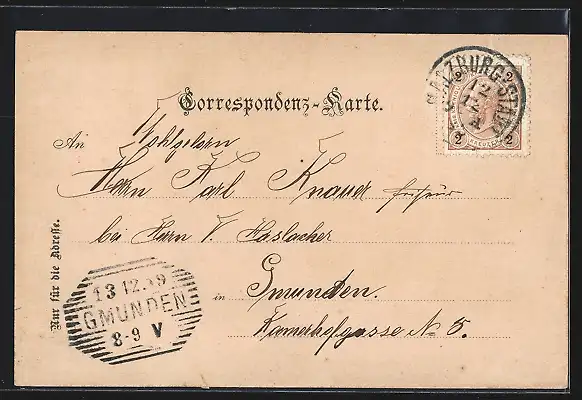 Correspondenz-Karte.
SALZBURG-STADT
12
2 2
2 2
An Wohlgeborn
Herrn Karl Knauer Friseur
bei Herrn V. Haslacher
in Gmunden.
Kamerhofgasse No 5.
Nur für die Adresse.
13 12.99
GMUNDEN
8-9 V